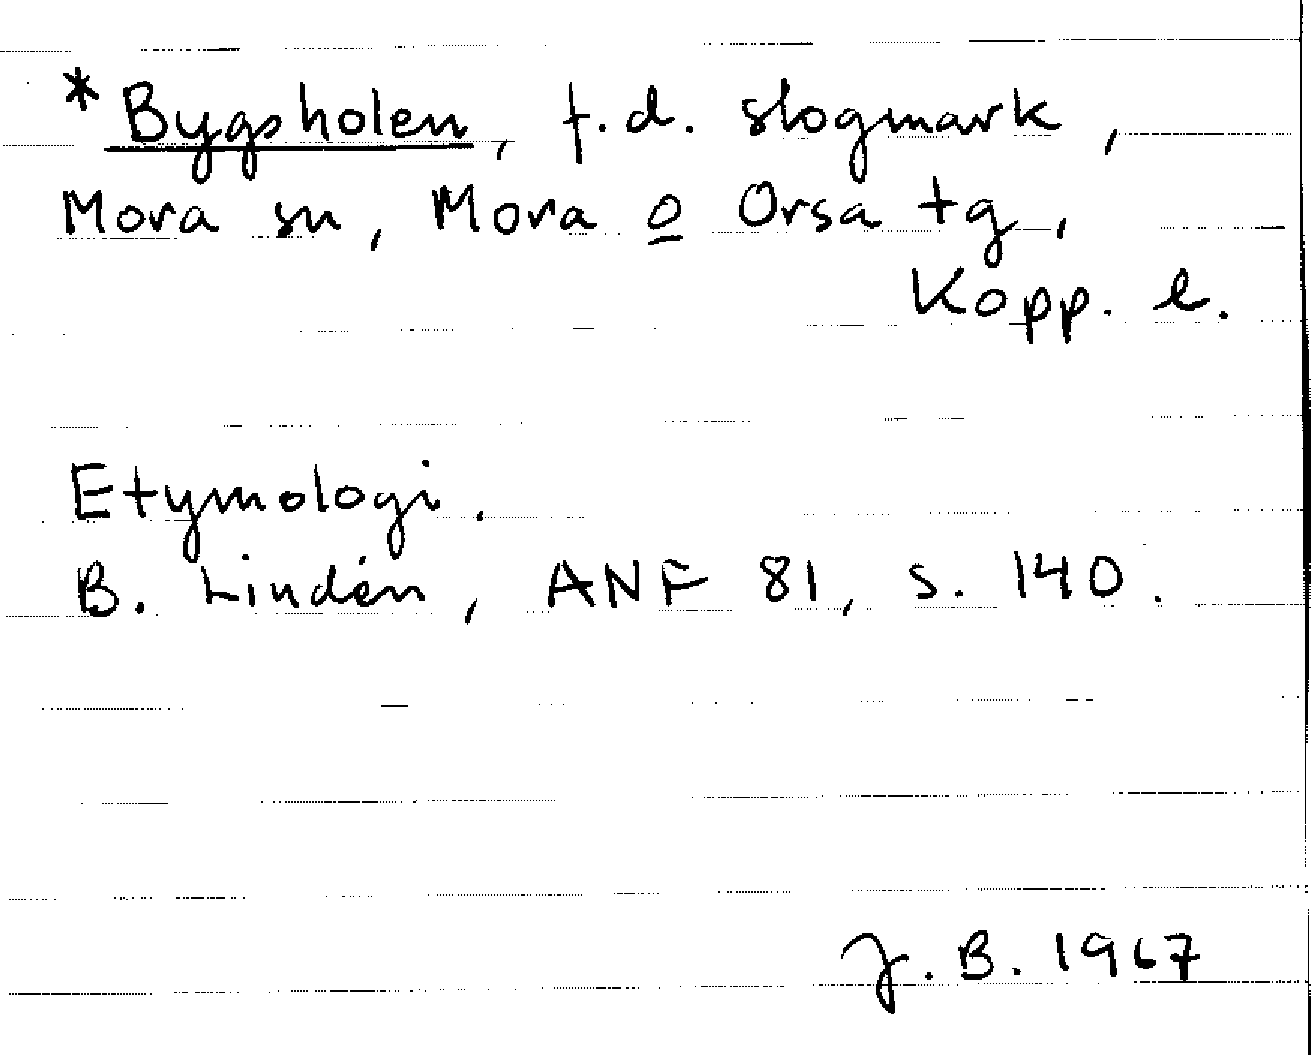 * Bygsholen, f.d. slogmark,
Mora sn, Mora o Orsa tg,
Kopp. l.
Etymologi.
B. Lindén, ANF 81, s. 140.
J. B. 1967